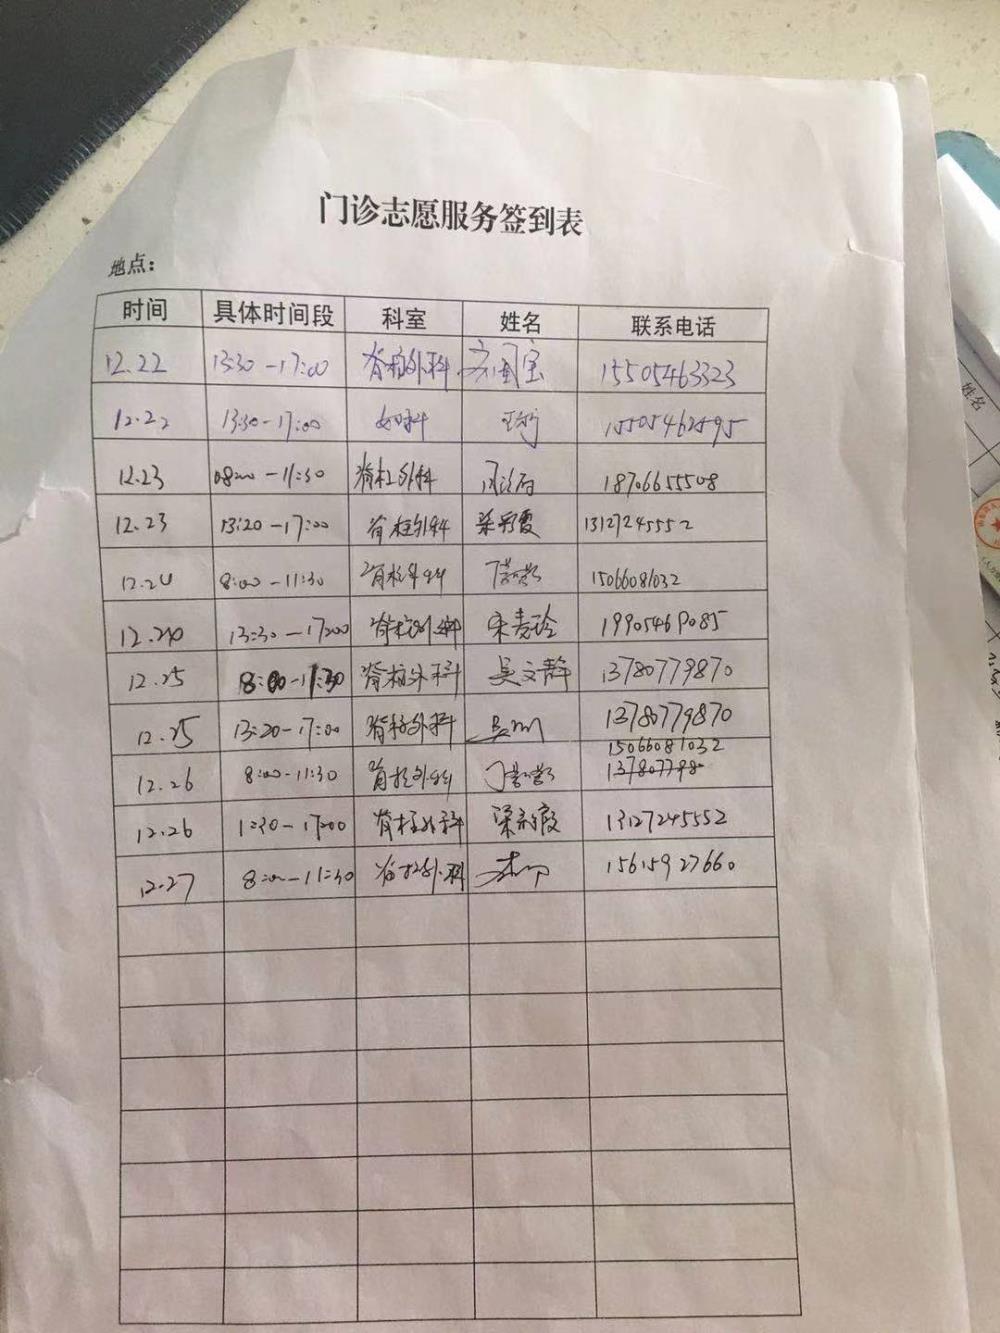 门诊志愿服务签到表
地点：
时间 具体时间段 科室 姓名 联系电话
12.22 13:30-17:00 脊柱外科 15505463323
12.22 13:30-17:00 15505462595
12.23 08:00-11:30 脊柱外科 18706655508
12.23 13:20-17:00 脊柱外科 梁秀霞 13127245552
12.24 8:00-11:30 脊柱外科 15066081032
12.24 13:30-17:00 脊柱外科 宋麦玲 19905469085
12.25 8:00-11:30 脊柱外科 吴文静 13780779870
12.25 13:20-17:00 脊柱外科 13780779870
12.26 8:00-11:30 脊柱外科 15066081032
12.26 1:30-17:00 脊柱外科 梁秀霞 13127245552
12.27 8:00-11:30 脊柱外科 15615927660
姓名